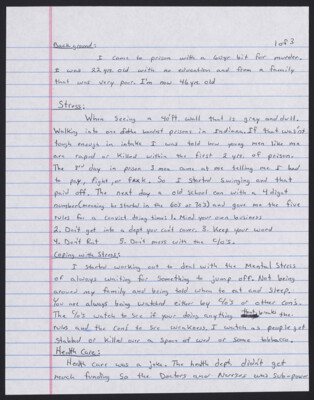 1 of 3
Background:
I came to prison with a 60yr bit for murder.
I was 22 yrs old with no education and from a family
that was very poor. I'm now 46 yrs old
Stress:
When seeing a 40ft wall that is gray and dull.
Walking into one of the worst prisons in Indiana. If that wasn't
tough enough in intake I was told how young men like me
are raped or killed within the first 2 yrs. of prison.
The 3rd day in prison 2 men came at me telling me I had
to pay, fight, or fuck. So I started swinging and that
paid off. The next day a old school con with a 4 digit
number (meaning he started in the 60's or 70's) and gave me the five
rules for a convict doing time: 1. Mind your own business
2. Don't get into a dept you can't cover. 3. Keep your word
4. Don't Rat 5. Don't mess with the c/o's.
Coping with Stress:
I started working out to deal with the Mental Stress
of always waiting for something to jump off. Not being
around my family and being told when to eat and sleep.
You are always being watched either by c/o's or other con's.
The c/o's watch to see if your doing anything that breaks the
rules and the cons to see weakness. I watch as people get
stabbed or killed over a spoon of weed or some tobbacco.
Health Care:
Health care was a joke. The health deph didn't get
much funding so the Doctors and Nurses was sub-power